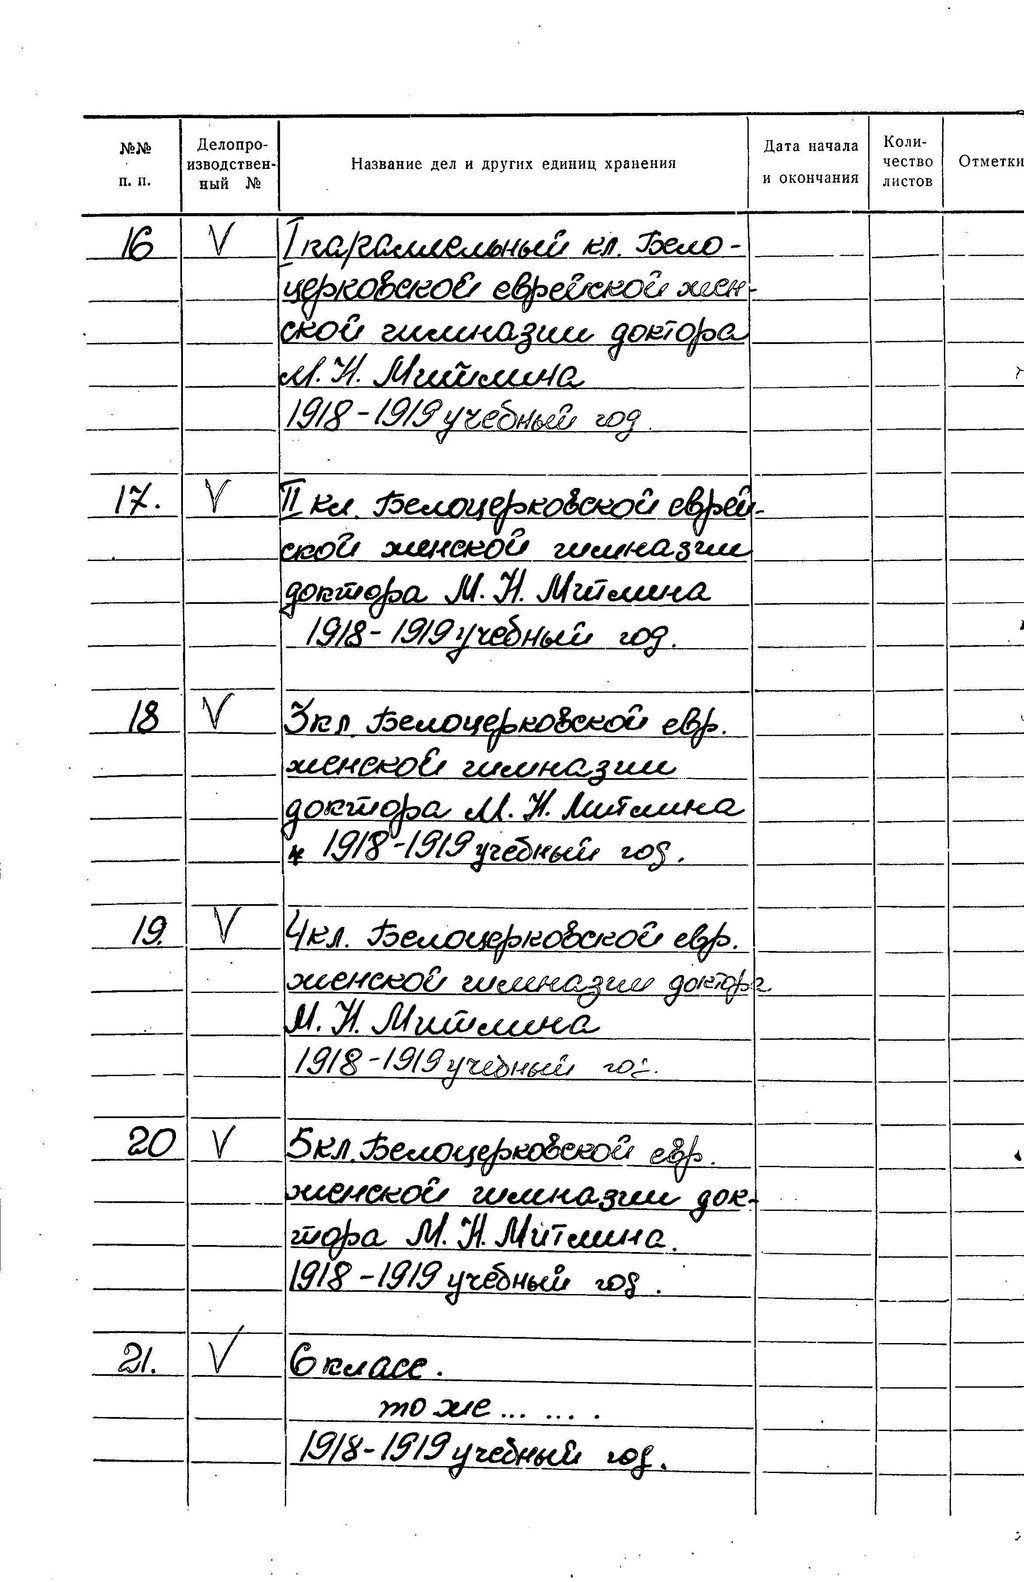 №№ п. п.
Делопроизводственный №
Название дел и других единиц хранения
Дата начала и окончания
Количество листов
Отметки
16 V I параллельный кл. Бело-
церковской еврейской жен-
ской гимназии доктора
М. Н. Митлина
1918-1919 учебный год.
17. V II кл. Белоцерковской еврей-
ской женской гимназии
доктора М. Н. Митлина
1918-1919 учебный год.
18 V 3 кл. Белоцерковской евр.
женской гимназии
доктора М. Н. Митлина
1918-1919 учебный год.
19. V 4 кл. Белоцерковской евр.
женской гимназии доктора
М. Н. Митлина
1918-1919 учебный год.
20 V 5 кл. Белоцерковской евр.
женской гимназии док-
тора М. Н. Митлина.
1918-1919 учебный год.
21. V 6 класс.
то же... ... .
1918-1919 учебный год.